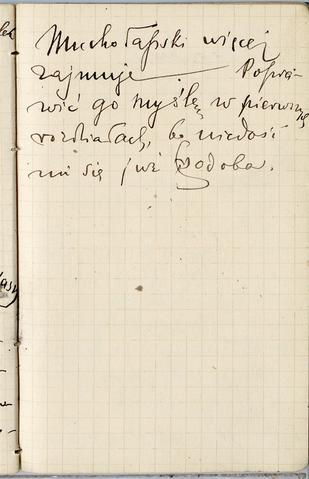 Muchołapski więcej
zajmuje — Popra-
wić go myślę w pierwszych
rozdziałach, bo niedość
mi się już podoba.